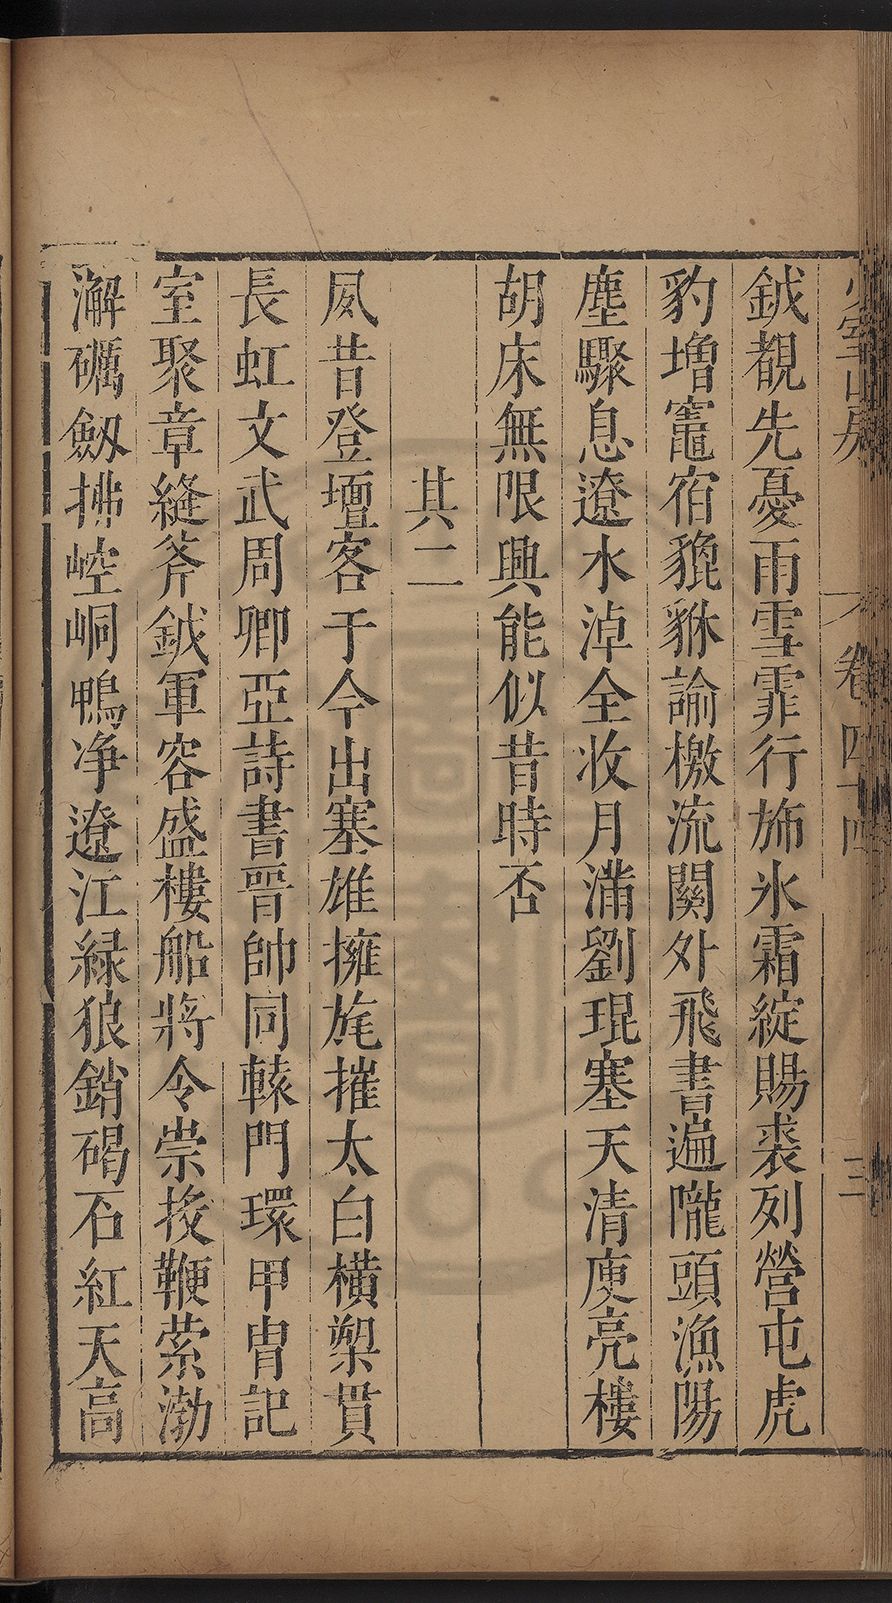 少室山房 卷四十四 三
鉞覩先憂雨雪霏行斾氷霜綻賜裘列營屯虎
豹増竈宿貔貅諭檄流關外飛書遍隴頭漁陽
塵驟息遼水淖全收月滿劉琨塞天清庾亮樓
胡床無限興能似昔時否
其二
夙昔登壇客于今出塞雄擁旄摧太白橫槊貫
長虹文武周卿亞詩書晉帥同轅門環甲胄記
室聚章縫斧鉞軍容盛樓船將令崇投鞭縈渤
澥礪劔拂崆峒鴨净遼江緑狼銷碣石紅天高